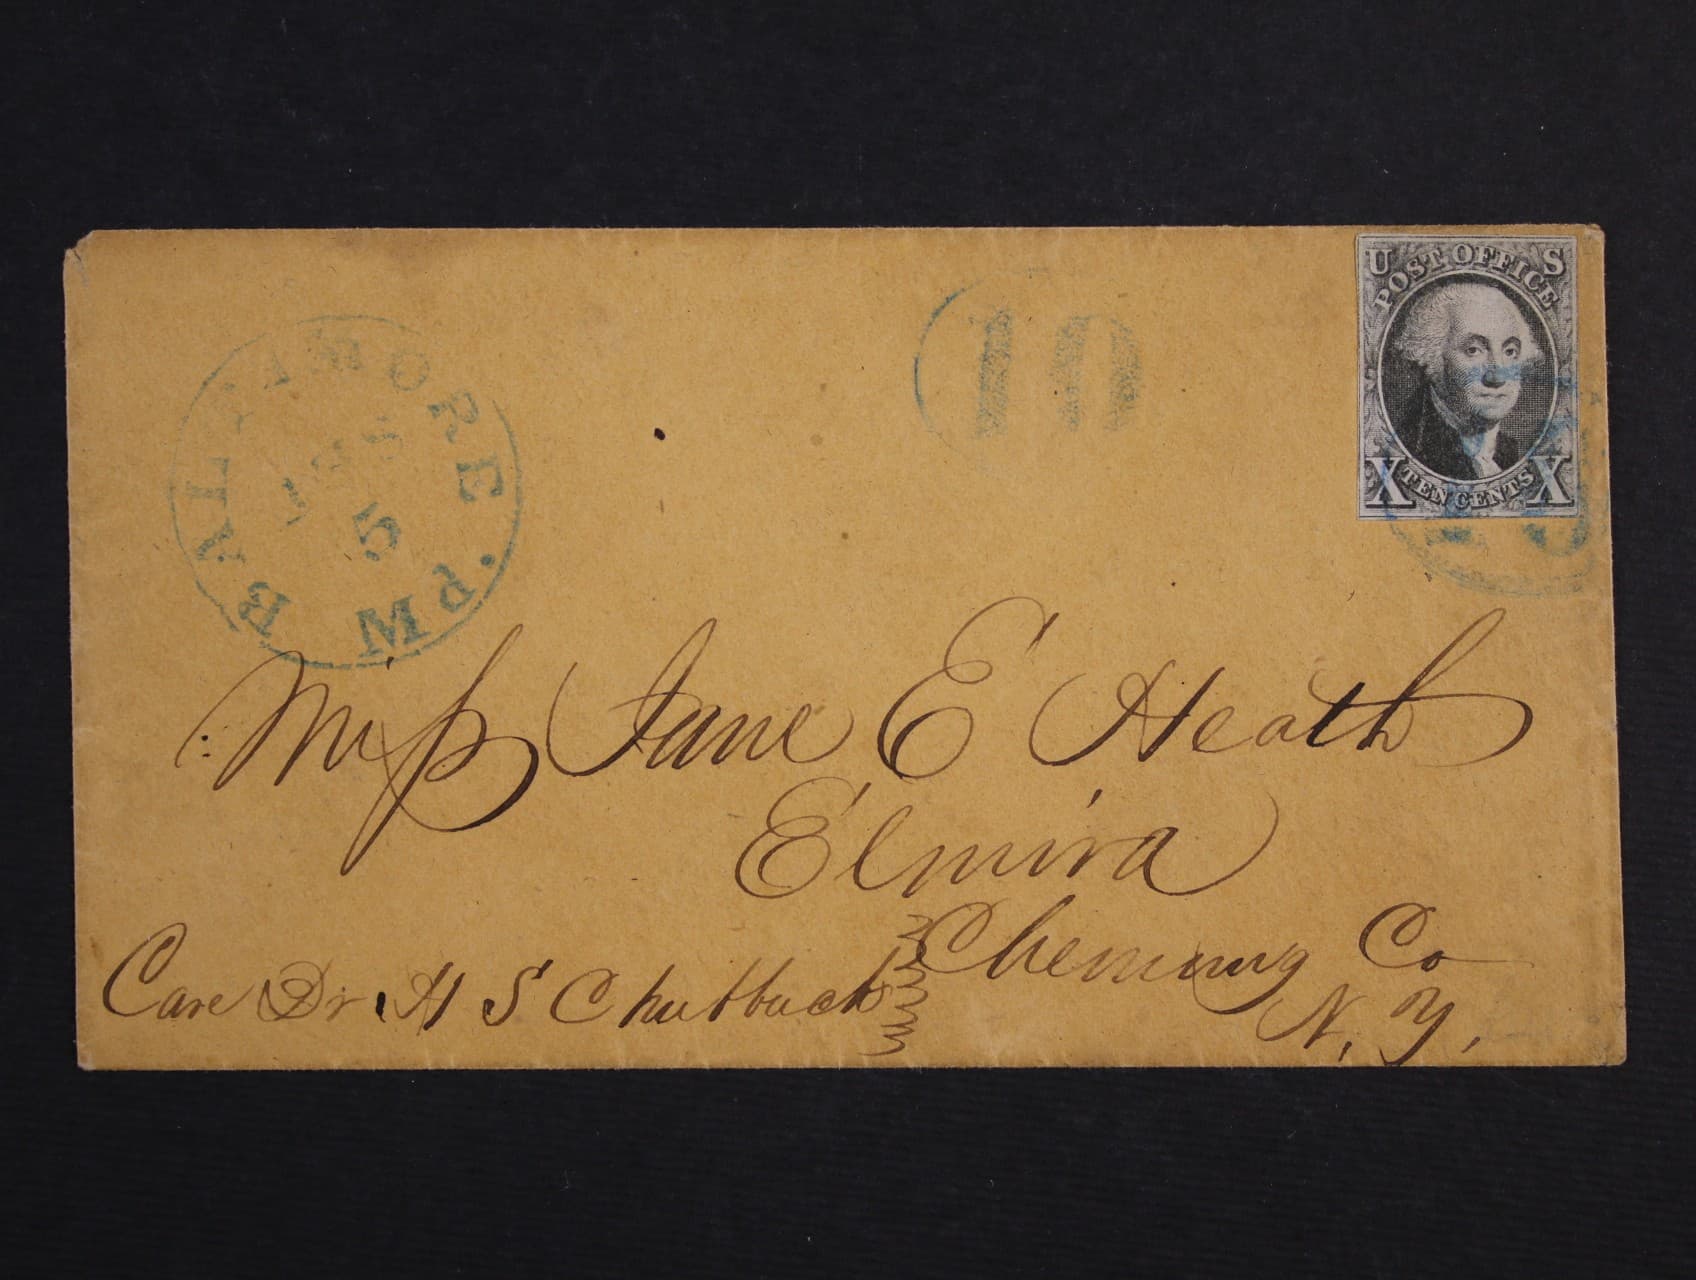 U S
POST OFFICE
X TEN CENTS X
10
10
BALTIMORE
5
Md.
Miss Jane E Heath
Elmira
Chemung Co
N. Y.
Care Dr. H S Chubbuck